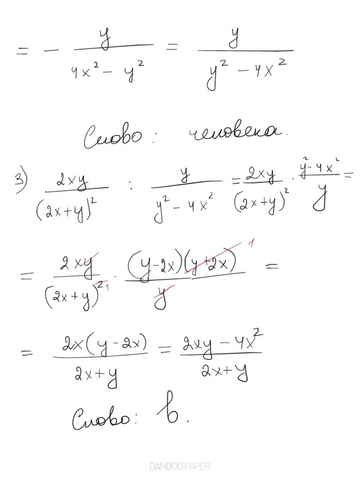 = - y/(4x² - y²) = y/(y² - 4x²)
Слово: человека.
3) 2xy/(2x+y)² : y/(y² - 4x²) = 2xy/(2x+y)² · (y² - 4x²)/y =
= 2xy/(2x+y)² ¹ · (y-2x)(y+2x) ¹/y =
= 2x(y-2x)/(2x+y) = (2xy - 4x²)/(2x+y)
Слово: в.
BAMBOO PAPER